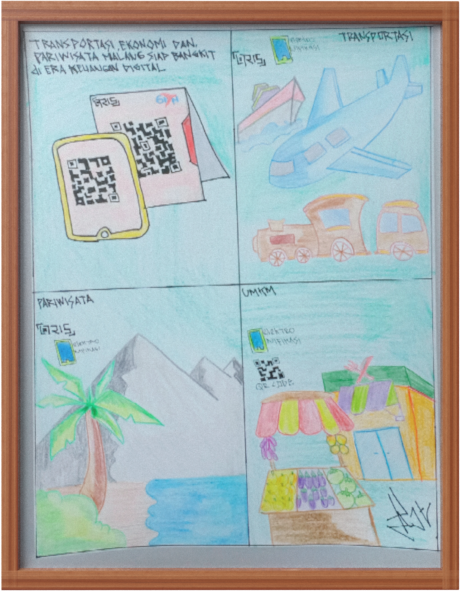 TRANSPORTASI, EKONOMI DAN
PARIWISATA MALANG SIAP BANGKIT
di ERA KEUANGAN DIGITAL
QRIS
GPN
TRANSPORTASI
QRIS
PARIWISATA
QRIS
UMKM